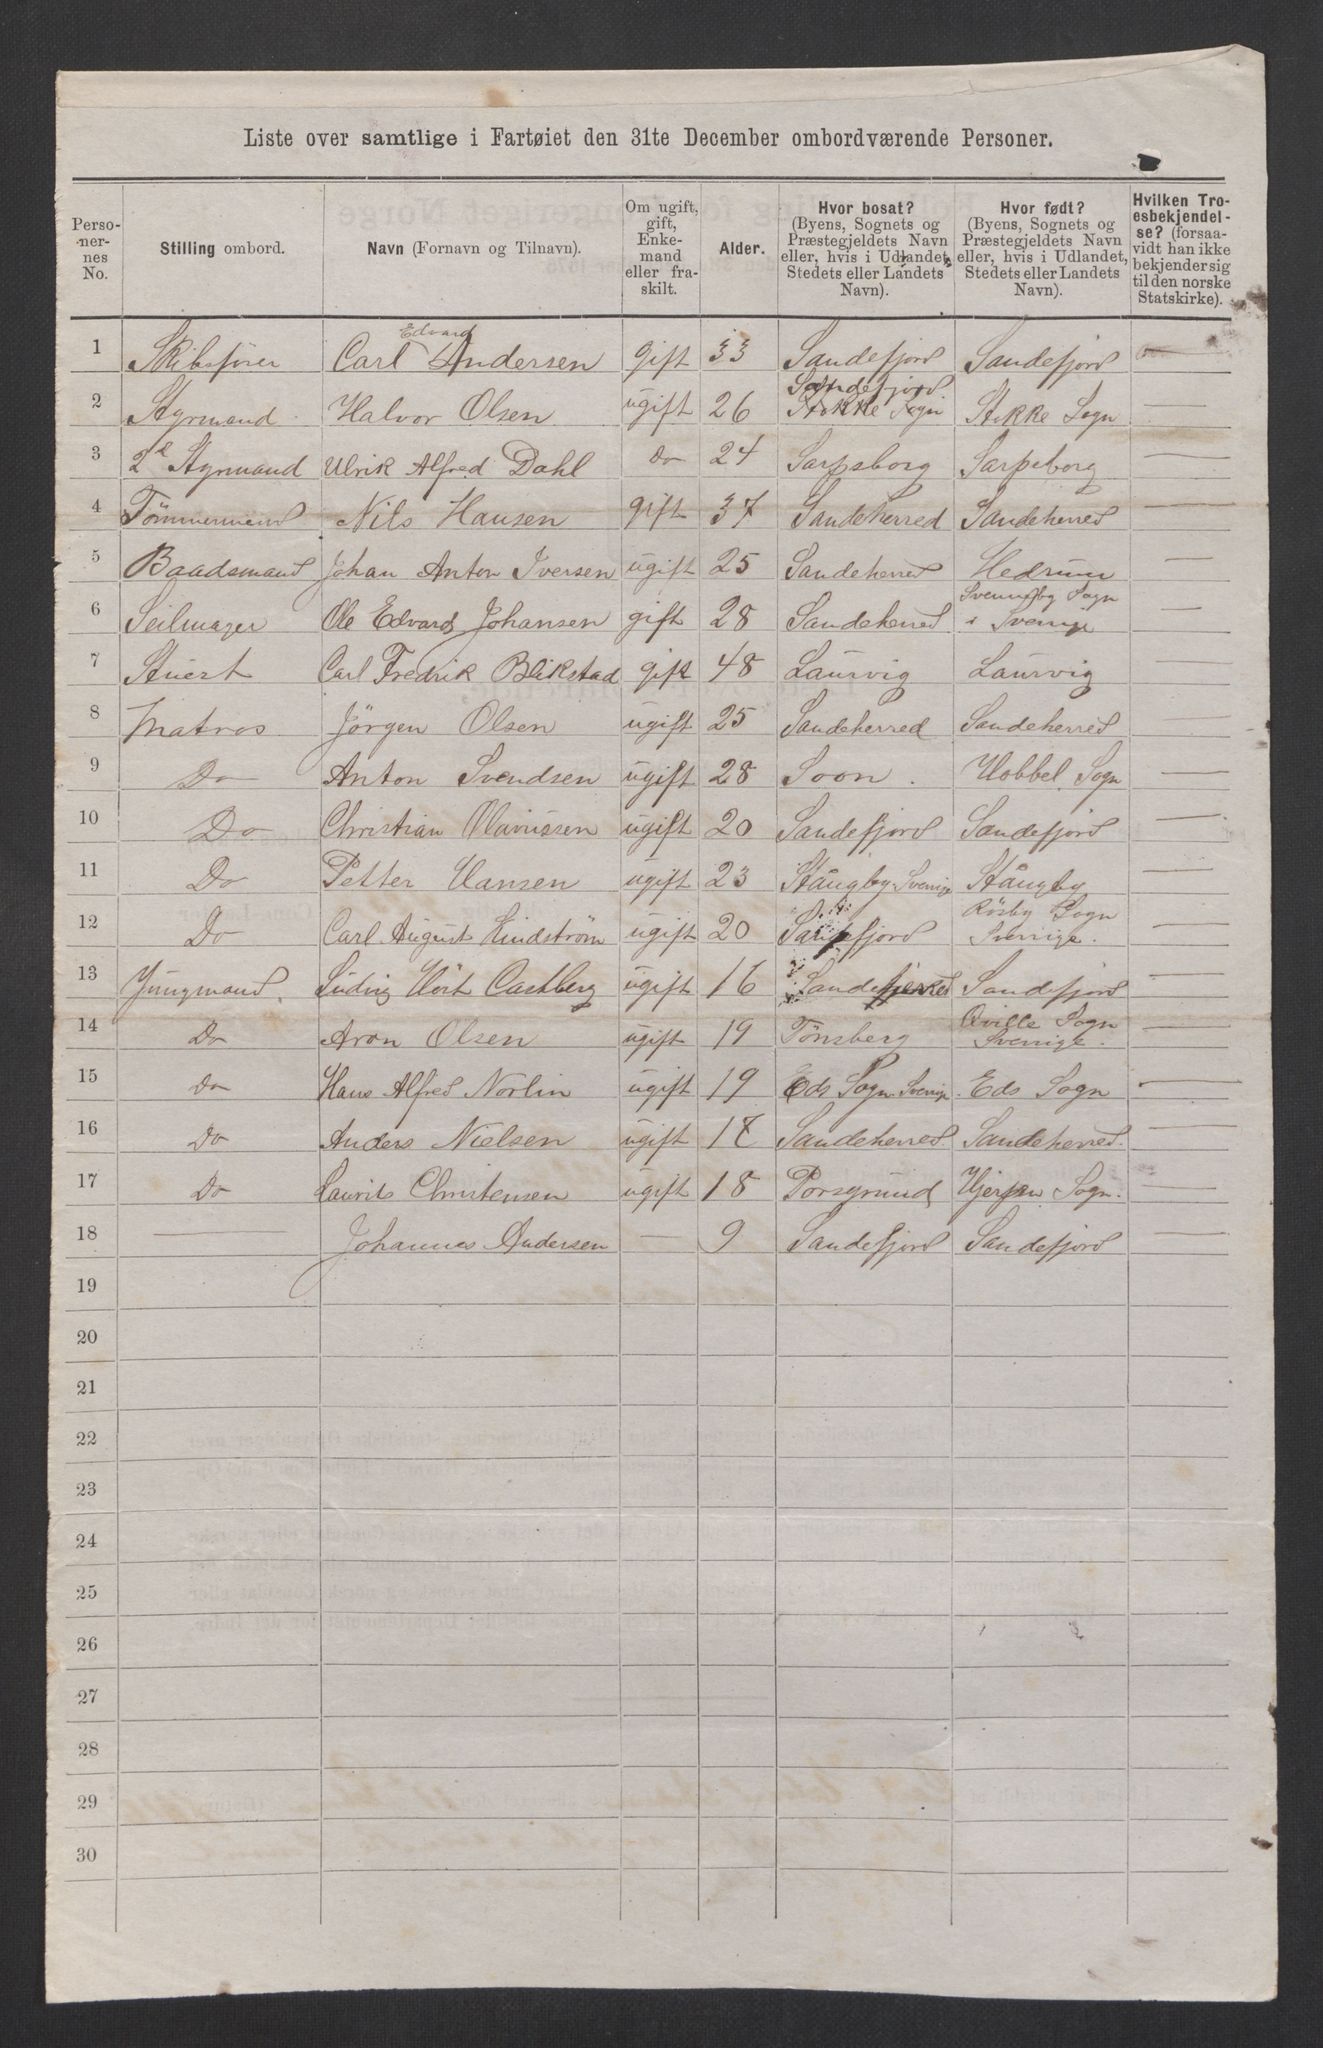 Liste over samtlige i Fartøiet den 31te December ombordværende Personer.
Perso-
ner-
nes
No.
Stilling ombord.
Navn (Fornavn og Tilnavn).
Om ugift,
gift,
Enke-
mand
eller fra-
skilt.
Alder.
Hvor bosat?
(Byens, Sognets og
Præstegjeldets Navn
eller, hvis i Udlandet,
Stedets eller Landets
Navn).
Hvor født?
(Byens, Sognets og
Præstegjeldets Navn
eller, hvis i Udlandet,
Stedets eller Landets
Navn).
Hvilken Tro-
esbekjendel-
se? (forsaa-
vidt han ikke
bekjender sig
til den norske
Statskirke).
1 Skibsfører Carl Edvard Andersen gift 33 Sandefjord Sandefjord —
2 Styrmand Halvor Olsen ugift 26 Sandefjord Stokke Sogn Stokke Sogn —
3 2d Styrmand Ulrik Alfred Dahl Do 24 Sarpsborg Sarpsborg —
4 Tömmermand Nils Hansen gift 37 Sandeherred Sandeherred —
5 Baadsmand Johan Anton Iversen ugift 25 Sandeherred Hedrum —
6 Seilmager Ole Edvard Johansen gift 28 Sandeherred Sogn i Sverige —
7 Stuert Carl Fredrik Blikstad gift 48 Laurvig Laurvig —
8 Matros Jörgen Olsen ugift 25 Sandeherred Sandeherred —
9 Do Anton Svendsen ugift 28 Soon. Hobbel Sogn —
10 Do Christian Olavussen ugift 20 Sandefjord Sandefjord —
11 Do Petter Hansen ugift 23 Stångby Sverige Stångby —
12 Do Carl August Lindström ugift 20 Sandefjord Rösby Sogn Sverige. —
13 Jungmand. Ludvig Hört Castberg ugift 16 Sandefjord —
14 Do Aron Olsen ugift 19 Tönsberg Qville Sogn Sverige. —
15 Do Hans Alfred Norlin ugift 19 Eds Sogn Sverige Eds Sogn —
16 Do Anders Nielsen ugift 17 Sandeherred. Sandeherred. —
17 Do Laurits Christensen ugift 18 Porsgrund Hjerpen Sogn. —
18 — Johannes Andersen — 9 Sandefjord Sandefjord —
19
20
21
22
23
24
25
26
27
28
29
30